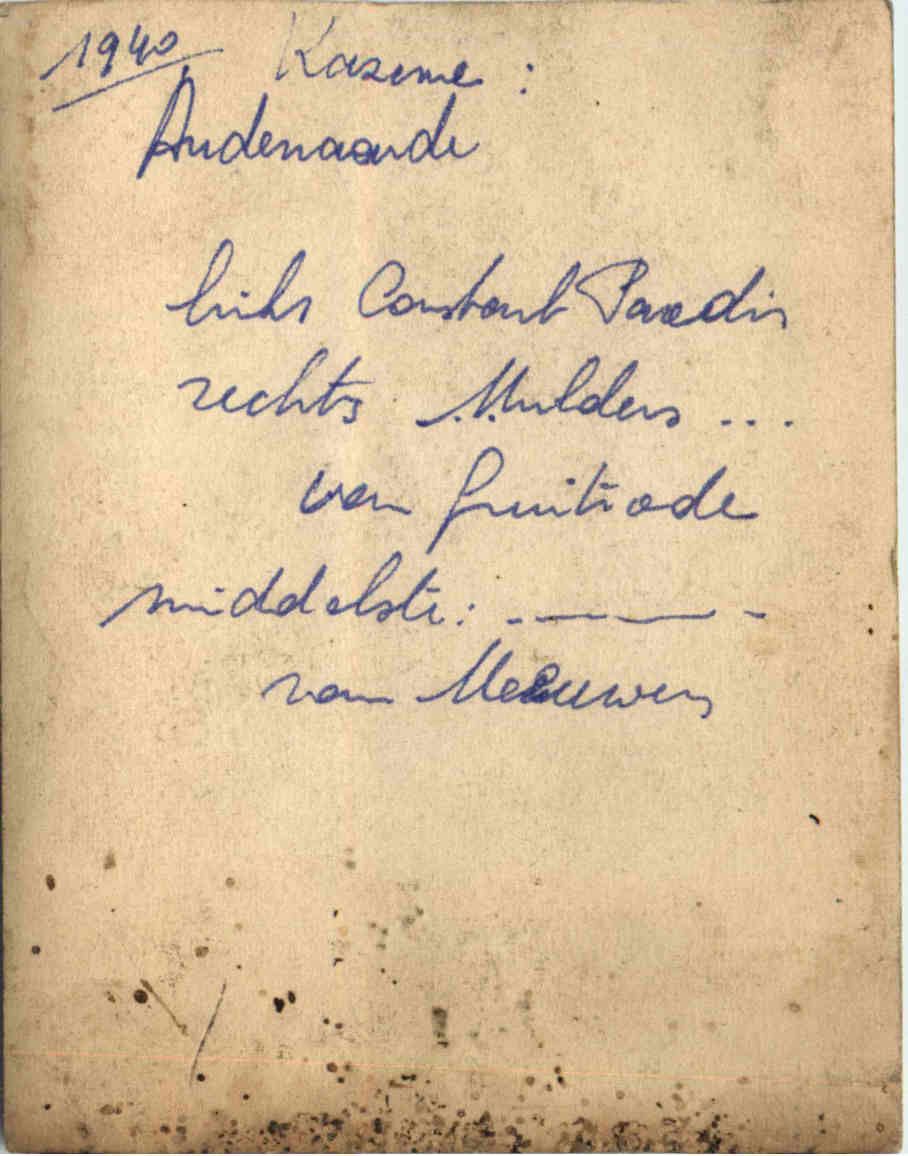 1940 Kazerne :
Audenaarde
links Constant Paredis
rechts Mulders ...
van Gruitrode
middelste : . — — — -
van Meeuwen